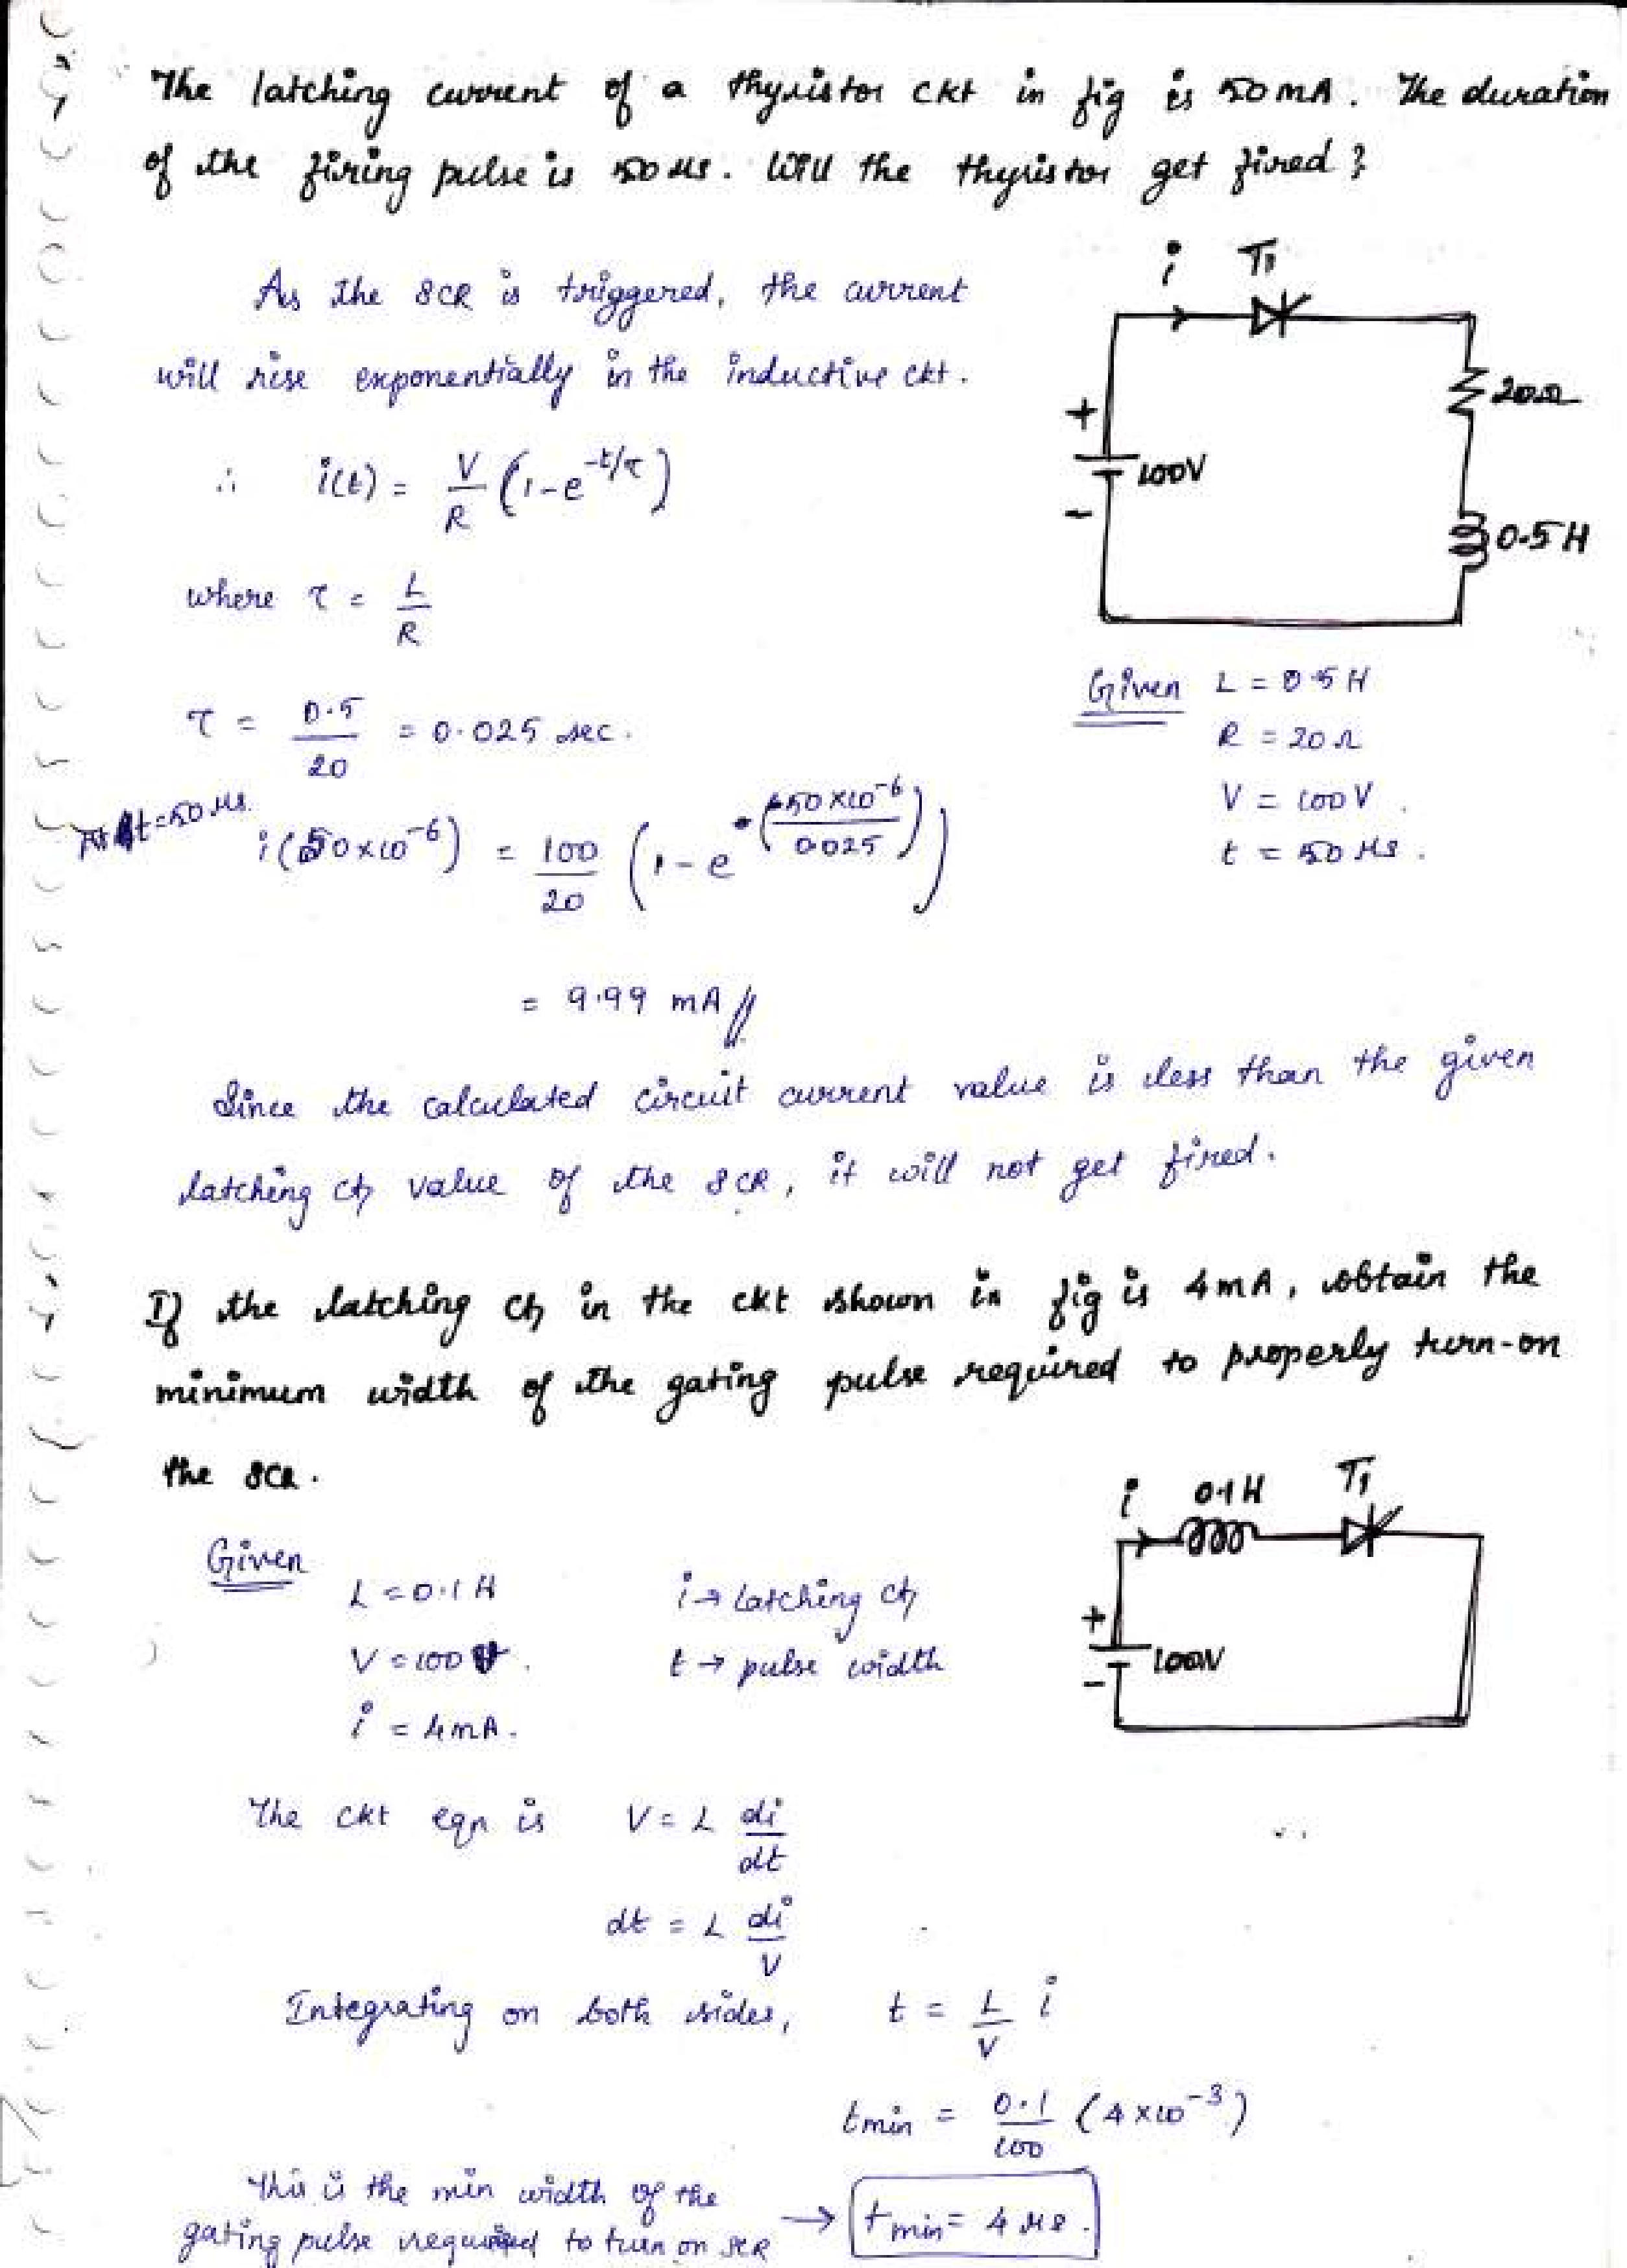 The latching current of a thyristor ckt in fig is 50mA. The duration
of the firing pulse is 50 μs. Will the thyristor get fired?
As the SCR is triggered, the current
will rise exponentially in the inductive ckt.
i T1
+
100V
-
20Ω
0.5H
∴ i(t) = V/R (1-e^(-t/τ))
where τ = L/R
τ = 0.5/20 = 0.025 sec.
Given L = 0.5H
R = 20Ω
V = 100V.
t = 50 μs.
At t=50 μs
i(50×10^-6) = 100/20 (1-e^-(50×10^-6/0.025))
= 9.99 mA //
Since the calculated circuit current value is less than the given
latching value of the SCR, it will not get fired.
If the latching in the ckt shown in fig is 4mA, obtain the
minimum width of the gating pulse required to properly turn-on
the SCR.
i 0.1H T1
+
100V
-
Given
L = 0.1H i → Latching
V = 100V. t → pulse width
i = 4mA.
The ckt eqn is V = L di/dt
dt = L di/V
Integrating on both sides, t = L/V i
tmin = 0.1/100 (4×10^-3)
This is the min width of the
gating pulse required to turn on SCR → tmin = 4 μs.